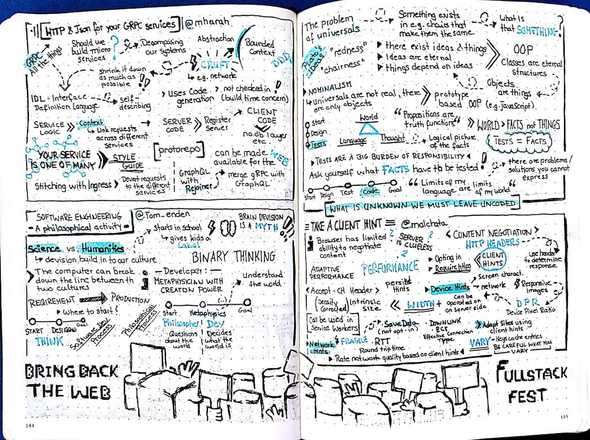 HTTP & Json for your GRPC services
@mhanah
GRPC
All the things
Should we build micro services?
Decomposing our systems
Abstraction
Bounded Context
DDD
CRUFT
e.g. network
Strip it down as much as possible
IDL - Interface Definition Language
self-describing
Uses Code generation
not checked in! (build time concern)
SERVICE LOGIC
Context
link requests across different services
SERVER CODE
Register Server
CLIENT CODE
no db layer etc.
YOUR SERVICE IS ONE OF MANY
STYLE GUIDE
[protorepo]
can be made available for the WEB
Stitching with Ingress
Divert requests to the different services
GraphQL with Rejoiner
merge gRPC with GraphQL
SOFTWARE ENGINEERING
A philosophical activity
@Tom_enden
Starts in school
gives kids a
BRAIN DIVISION is a MYTH
Science vs. Humanities
division build in to our culture
BINARY THINKING
The computer can break down the line between the two cultures
Developer:
METAPHYSICIAN WITH CREATION POWER
Understand the world
REQUIREMENT
PRODUCTION
Where to start?
START
DESIGN
THINK
Software Dev Process
Philosophical Process
Start
Metaphysics
Goal
Philosopher
Dev
Questions about the world
Decides what the world is
BRING BACK THE WEB
144
The problem of universals
Something exists in e.g. chairs that make them the same
What is that SOMETHING?
Plato's Ideas
"redness"
"chairness"
there exist ideas & things
Ideas are eternal
things depend on ideas
OOP
Classes are eternal structures
Objects are things
NOMINALISM
Universals are not real, there are only objects
prototype based OOP (e.g. javascript)
Start
Design
Tests
World
Language
Thought
"Propositions are truth functions"
Logical picture of the facts
WORLD = FACTS not THINGS
TESTS = FACTS
TESTS ARE A BIG BURDEN OF RESPONSIBILITY!
Ask yourself what FACTS have to be tested!
there are problems / solutions you cannot express
Start
Design
Test
Code
Goal
"Limits of my language are limits of my world"
WHAT IS UNKNOWN WE MUST LEAVE UNCODED
TAKE A CLIENT HINT
@malchata
Browser has limited ability to negotiate content
? SERVER IS CLUELESS ?
CONTENT NEGOTIATION
HTTP HEADERS
ADAPTIVE PERFORMANCE
PERFORMANCE
Opting in
Require https
CLIENT HINTS
Use hints to determine response
Screen charact.
Accept-CH Header
persist hints
Device Hints
network
Responsive images
Density Corrected
Intrinsic size
WIDTH
Can be operated on server side
DPR
Device Pixel Ratio
Can be used in Service Workers
SaveData (not opt-in)
DOWNLINK
ECT
Effective Connection Type
Adapt Sites using client hints
Network Hints
FRAGILE
RTT
Round trip time
VARY
Key cache entries
BE CAREFUL WHAT YOU VARY
Rate network quality based on client hints
FULLSTACK FEST
145